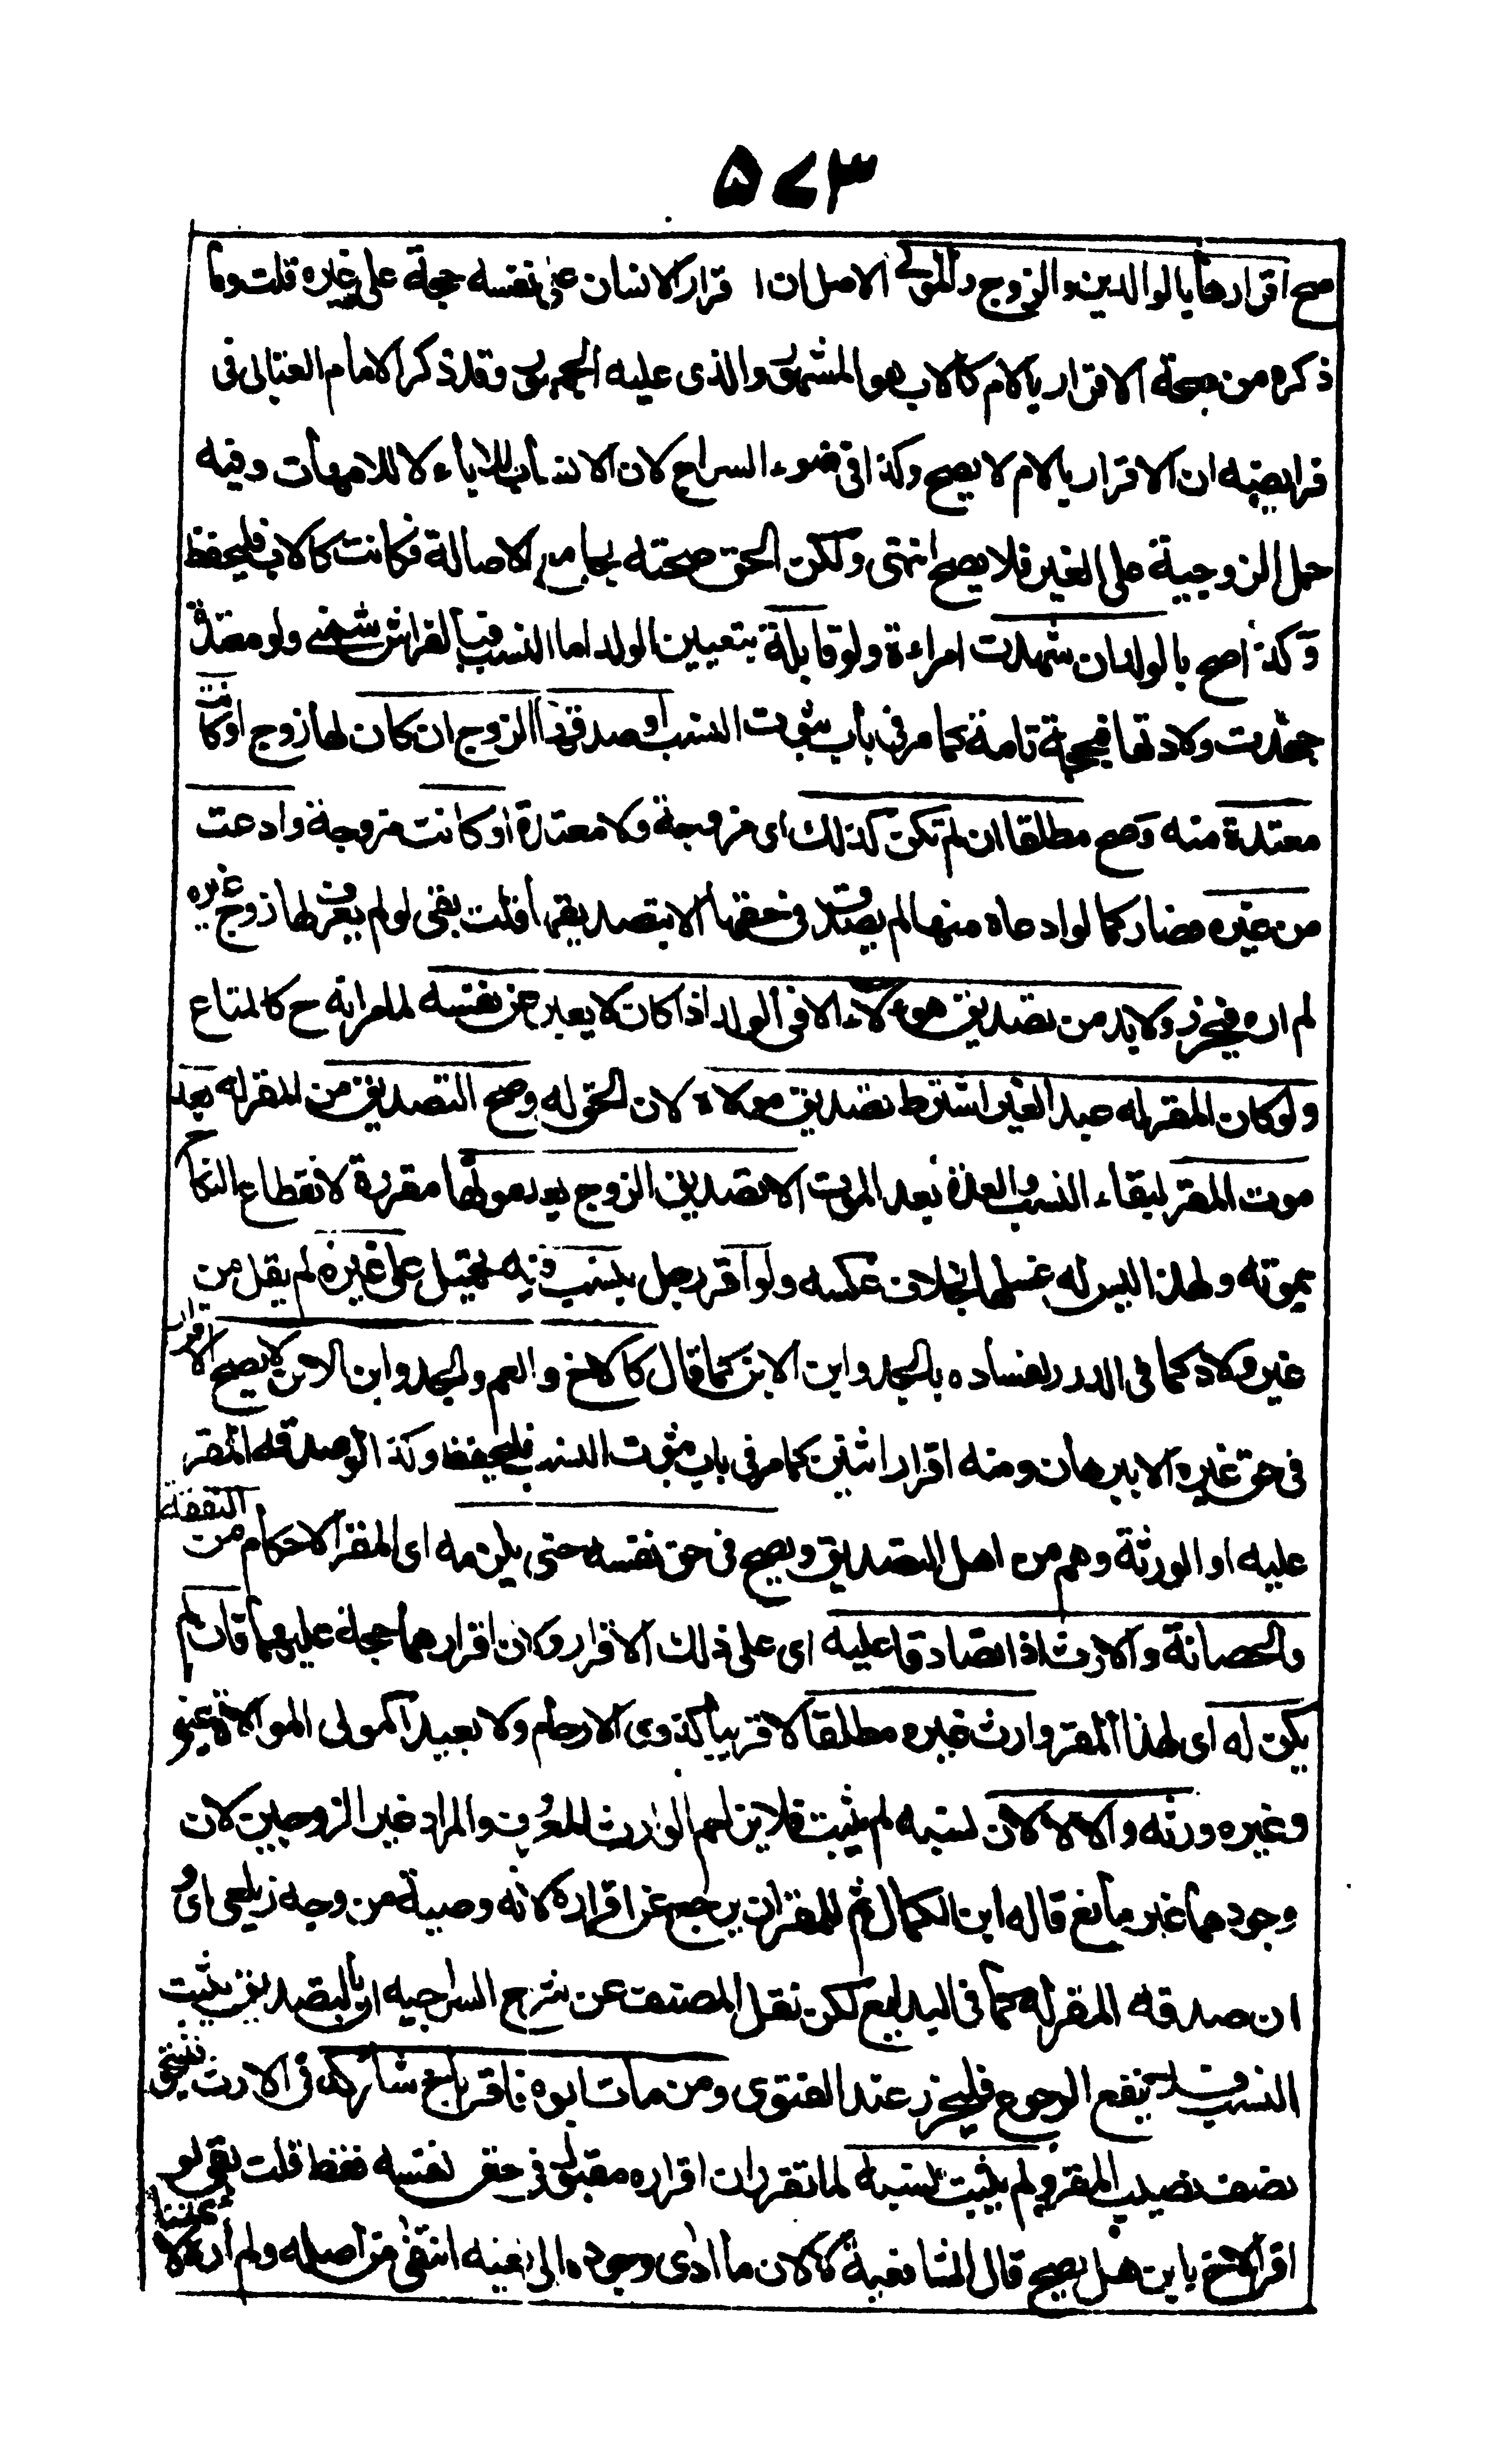 ۵۷۳
صح اقرارها بالوالدين والزوج والمولى الاصل ان اقرار الانسان على نفسه حجة لا على غيره قلت وما
ذكره من صحة الاقرار بالام كالاب هو المشهور الذى عليه الجمهور وقد ذكر الامام العتابى فى
فرايضه ان الاقرار بالام لا يصح وكذا فى ضوء السراج لان الانتساب للاباء لا للامهات وفيه
حمل الزوجية على الغير فلا يصح انتهى ولكن الحق صحته بجامع الاصالة فكانت كالاب فليحفظ
وكذا صح بالولد ان شهدت امراءة ولو قابلة بتعيين الولد اما النسب فبالفراش شمنى ولو معتدة
جحدت ولادتها فبحجة تامة كما مر فى باب ثبوت النسب او صدقها الزوج ان كان لها زوج او كانت
معتدة منه وصح مطلقا ان لم تكن كذلك اى مزوجة ولا معتدة او كانت مزوجة وادعت
من غيره فصار كما لو ادعاه منها لم يصدق فى حقها الا بتصديقها قلت بقى لو لم يعرف لها زوج غيره
لم اره فيحرر ولابد من تصديق هؤلاء الا فى الولد اذا كان لا يعبر عن نفسه لما مر انه ح كالمتاع
ولو كان المقر له عبد الغير اشترط تصديق مولاه لان الحق له وصح التصديق من المقر له بعد
موت المقر لبقاء النسب والعدة بعد الموت الا تصديق الزوج بعد موتها مقرة لانقطاع النكاح
بموته ولهذا ليس له غسلها بخلاف عكسه ولو اقر رجل بنسب فيه تحميل على غيره لم يقل من
غير ولاد كما فى الدرر لفساده بالجد وابن الابن كما قال كالاخ والعم والجد وابن الابن لا يصح الاقرار
فى حق غيره الا ببرهان ومنه اقرار اثنين كما مر فى باب ثبوت النسب فليحفظ وكذا لو صدقه المقر
عليه او الورثة وهم من اهل التصديق ويصح فى حق نفسه حتى يلزمه اى المقر الاحكام من النفقة
والحضانة والارث اذا تصادقا عليه اى على ذلك الاقرار لان اقرارهما حجة عليهما فان لم
يكن له اى لهذا المقر وارث غيره مطلقا لا قريبا كذوى الارحام ولا بعيدا كمولى الموالاة عينى
وغيره ورثه والا لا لان نسبه لم يثبت فلا يزاحم الوارث المعروف والمراد غير الزوجين لان
وجودهما غير مانع قاله ابن الكمال ثم للمقر ان يرجع عن اقراره لانه وصية من وجه زيلعى اى و
ان صدقه المقر له كما فى البدايع لكن نقل المصنف عن شرح السراجيه ان بالتصديق يثبت
النسب فلا ينفع الرجوع فليحرر عند الفتوى ومن مات ابوه فاقر باخ شاركه فى الارث فيستحق
نصف نصيب المقر ولم يثبت نسبه لما تقرر ان اقراره مقبول فى حق نفسه فقط قلت بقى لو
اقر الاخ بابن هل يصح قال الشافعية لا لان ما ادى وجوده الى نفيه انتفى من اصله ولم اره لائمتنا